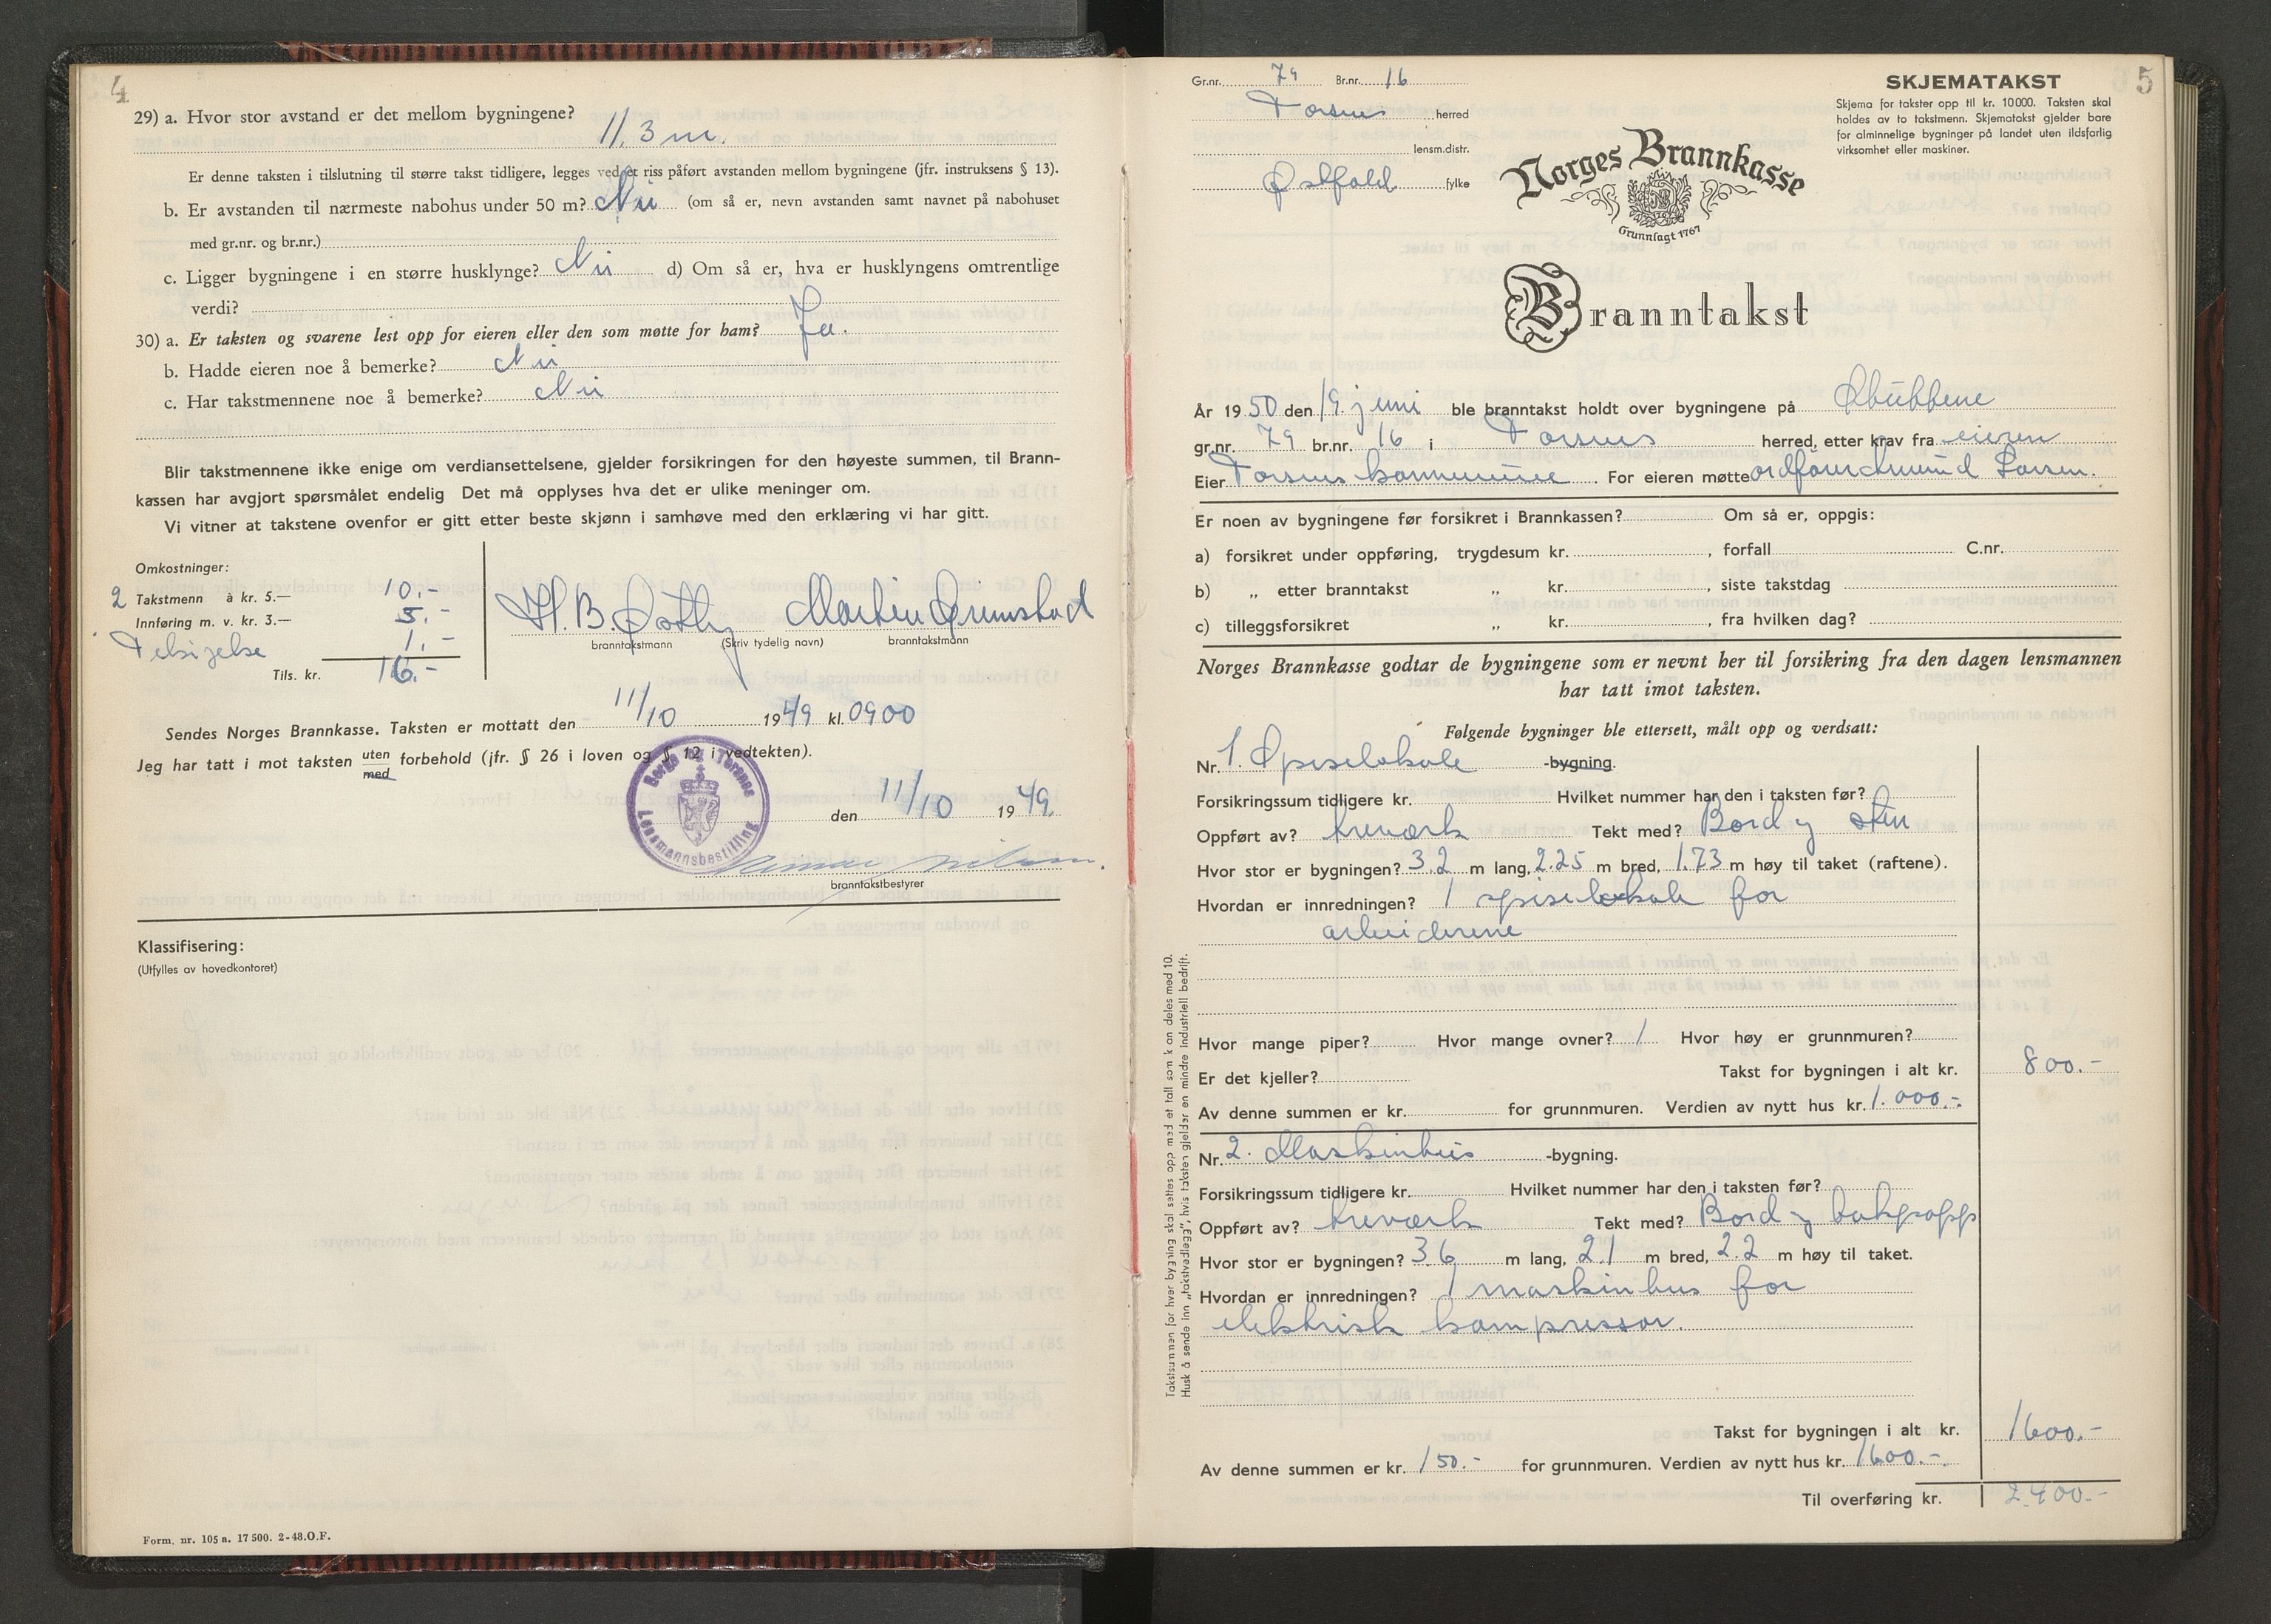 4
29) a. Hvor stor avstand er det mellom bygningene? 11.3 m.
Er denne taksten i tilslutning til større takst tidligere, legges ved et riss påført avstanden mellom bygningene (jfr. instruksens § 13).
b. Er avstanden til nærmeste nabohus under 50 m? Nei (om så er, nevn avstanden samt navnet på nabohuset
med gr.nr. og br.nr.)
c. Ligger bygningene i en større husklynge? Nei d) Om så er, hva er husklyngens omtrentlige
verdi?
30) a. Er taksten og svarene lest opp for eieren eller den som møtte for ham? Ja.
b. Hadde eieren noe å bemerke? Nei
c. Har takstmennene noe å bemerke? Nei
Blir takstmennene ikke enige om verdiansettelsene, gjelder forsikringen for den høyeste summen, til Brann-
kassen har avgjort spørsmålet endelig Det må opplyses hva det er ulike meninger om.
Vi vitner at takstene ovenfor er gitt etter beste skjønn i samhøve med den erklæring vi har gitt.
Omkostninger:
2 Takstmenn à kr. 5.— 10.-
Innføring m. v. kr. 3.— 5.-
1.-
Tils. kr. 16.-
H. B. Østby Martin Grimstad
branntakstmann (Skriv tydelig navn) branntakstmann
Sendes Norges Brannkasse. Taksten er mottatt den 11/10 1949 kl. 0900
Jeg har tatt i mot taksten uten forbehold (jfr. § 26 i loven og § 12 i vedtekten).
med
Borge og Torsnes
Lensmannsbestilling
den 11/10 1949.
Nilsen.
branntakstbestyrer
Klassifisering:
(Utfylles av hovedkontoret)
Form. nr. 105 a. 17 500. 2-48.O.F.
5
Gr.nr. 79 Br.nr. 16
Torsnes herred
lensm.distr.
Østfold fylke
SKJEMATAKST
Skjema for takster opp til kr. 10000. Taksten skal
holdes av to takstmenn. Skjematakst gjelder bare
for alminnelige bygninger på landet uten ildsfarlig
virksomhet eller maskiner.
Norges Brannkasse
Grunnlagt 1767
Branntakst
År 1950 den 19. juni ble branntakst holdt over bygningene på Stubbene
gr.nr. 79 br.nr. 16 i Torsnes herred, etter krav fra eieren
Eier Torsnes kommune. For eieren møtte ordfører Amund Larsen.
Er noen av bygningene før forsikret i Brannkassen? Om så er, oppgis:
a) forsikret under oppføring, trygdesum kr. , forfall C.nr.
b) „ etter branntakst „ kr. , siste takstdag
c) tilleggsforsikret „ kr. , fra hvilken dag?
Norges Brannkasse godtar de bygningene som er nevnt her til forsikring fra den dagen lensmannen
har tatt imot taksten.
Følgende bygninger ble ettersett, målt opp og verdsatt:
Nr. 1. Spiselokale -bygning.
Forsikringssum tidligere kr. Hvilket nummer har den i taksten før?
Oppført av? treværk Tekt med? Bord og sten
Hvor stor er bygningen? 3.2 m lang, 2.25 m bred, 1.73 m høy til taket (raftene).
Hvordan er innredningen? 1 spiselokale for
arbeiderene
Hvor mange piper? Hvor mange ovner? 1 Hvor høy er grunnmuren?
Er det kjeller? Takst for bygningen i alt kr. 800.-
Av denne summen er kr. for grunnmuren. Verdien av nytt hus kr. 1.000.-
Nr. 2. Maskinhus -bygning.
Forsikringssum tidligere kr. Hvilket nummer har den i taksten før?
Oppført av? treværk Tekt med? Bord og takpapp
Hvor stor er bygningen? 3.6 m lang, 2.1 m bred, 2.2 m høy til taket.
Hvordan er innredningen? 1 maskinhus for
elektrisk kompressor.
Takst for bygningen i alt kr. 1600.-
Av denne summen er kr. 150.- for grunnmuren. Verdien av nytt hus kr. 1600.-
Til overføring kr. 2.400.-
Takstsummen for hver bygning skal settes opp med et tall som kan deles med 10.
Husk å sende inn „takstvedlegg", hvis taksten gjelder en mindre industriell bedrift.